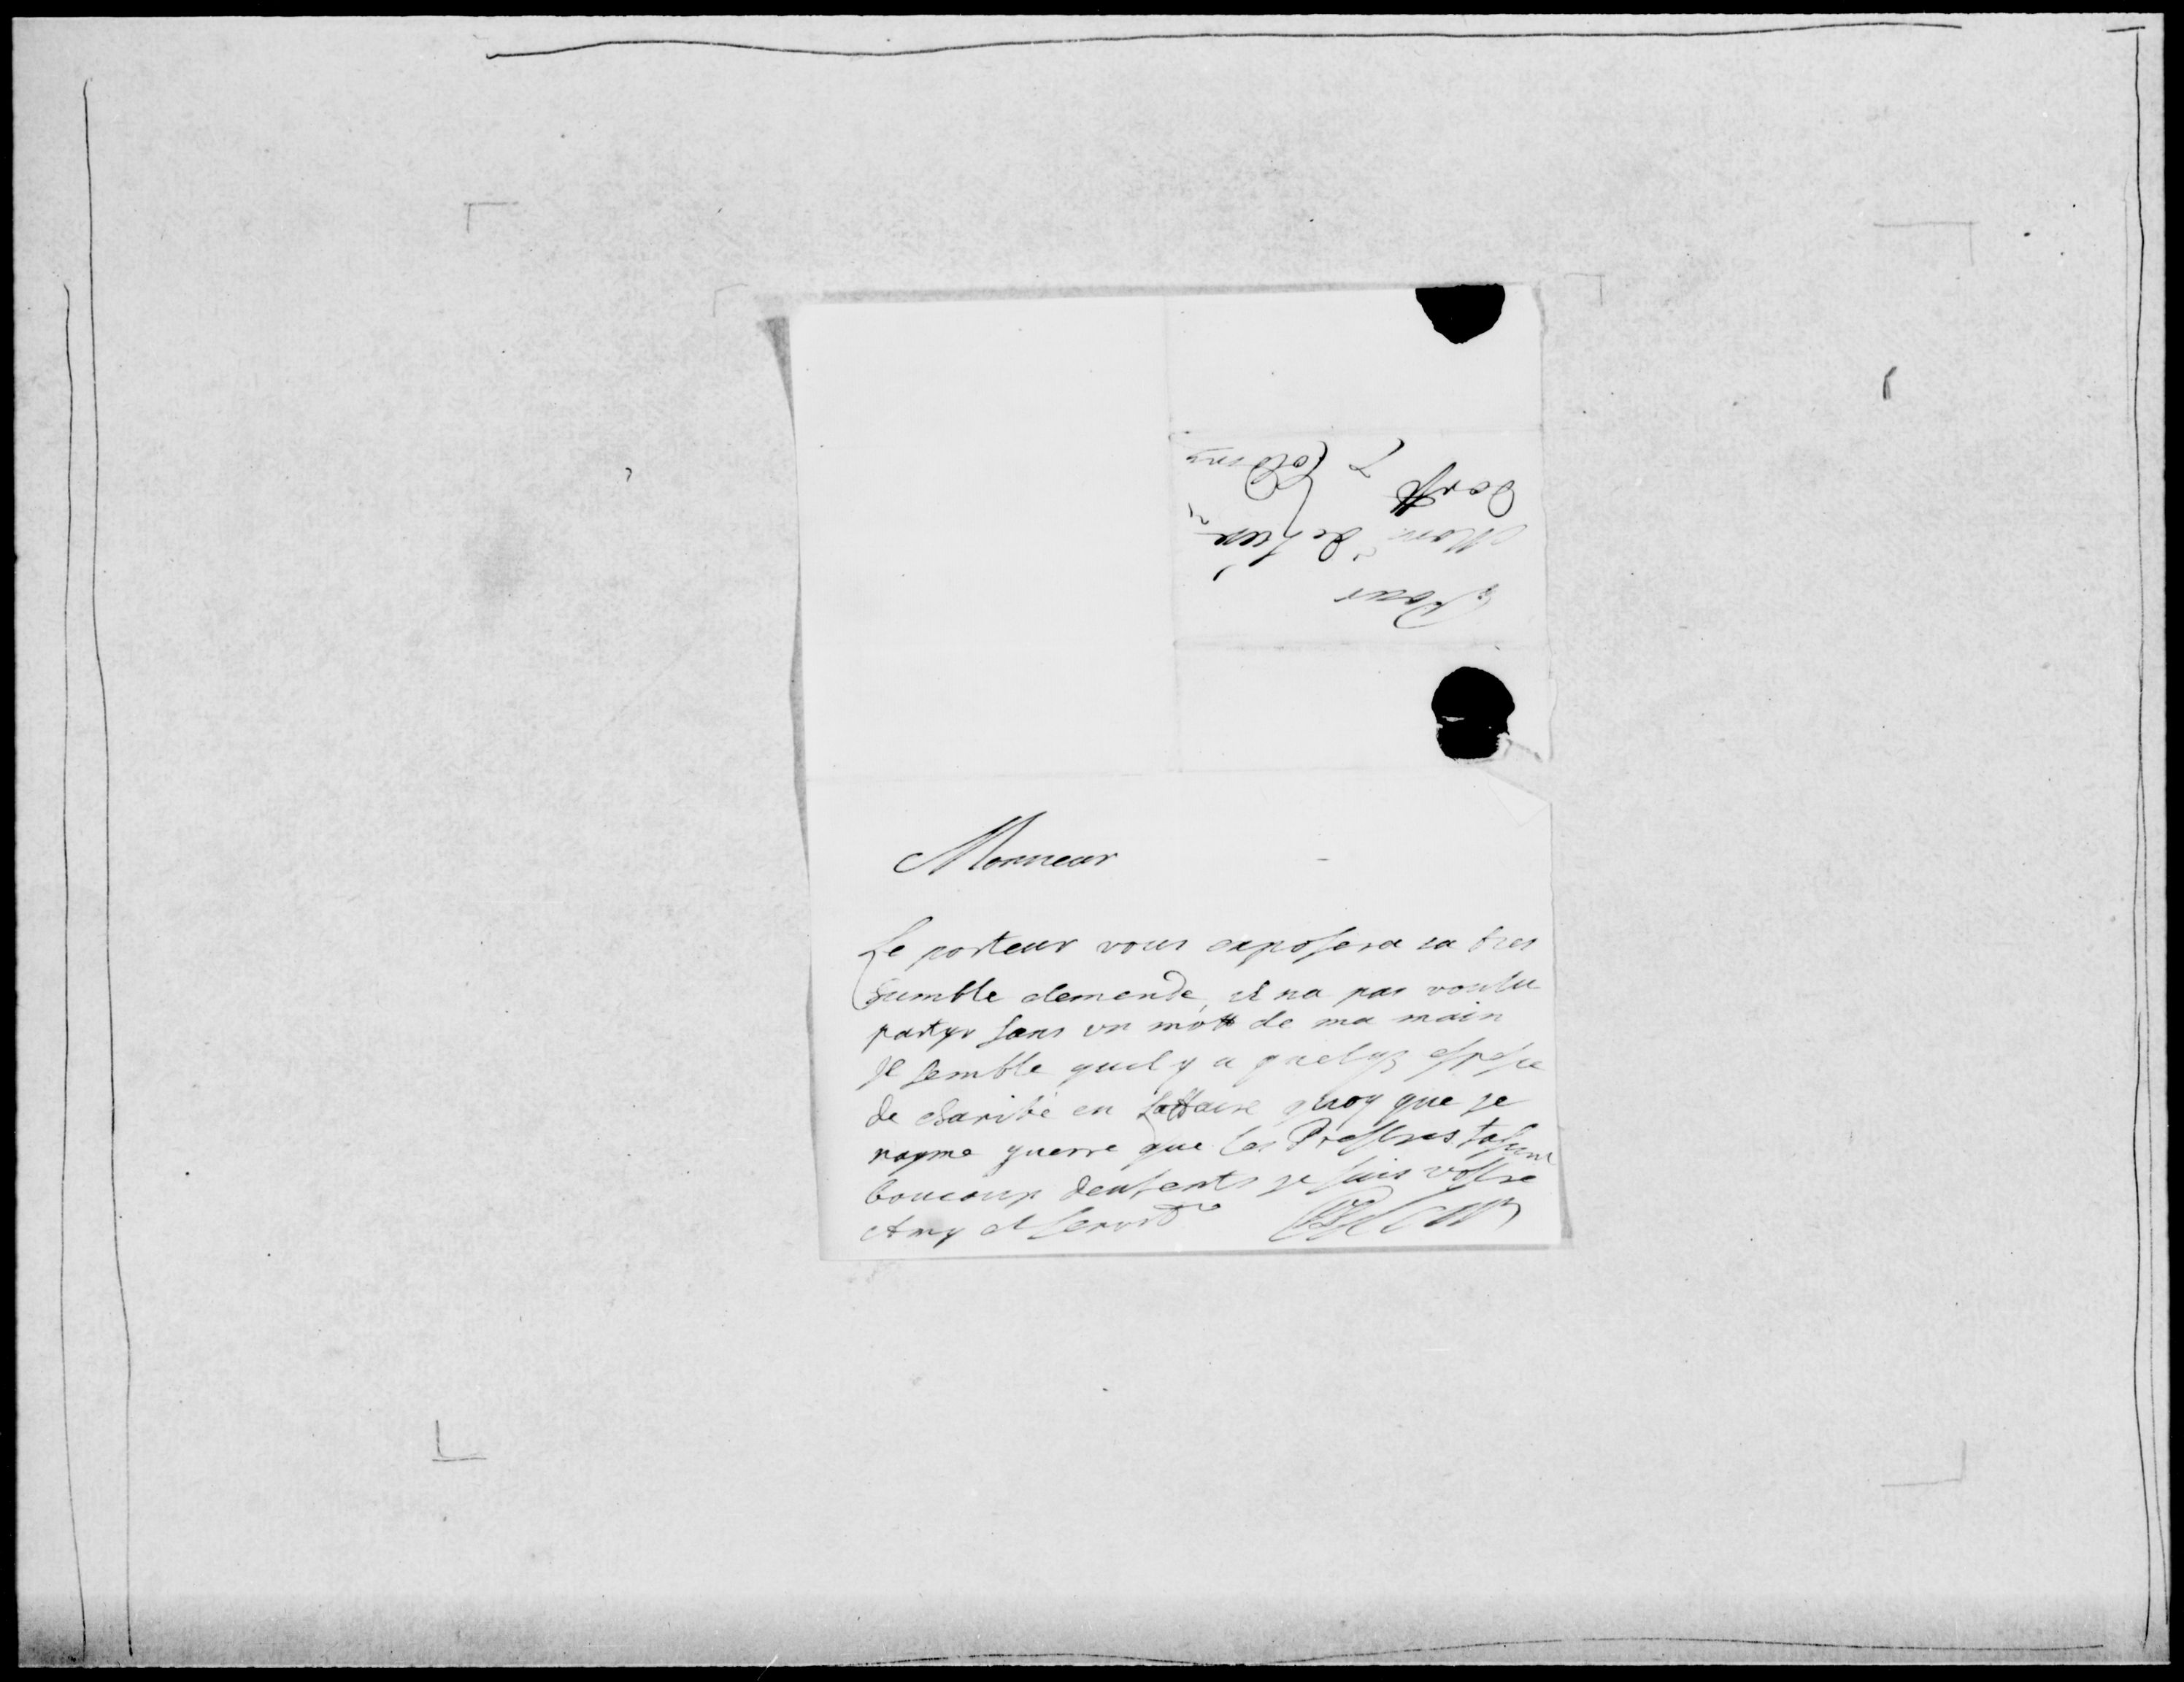 Pour
Mons.r de
Monsieur
Le porteur vous exposera sa tres
humble demende, il na pas voulu
partyr sans un mott de ma main
Jl semble quil y a quelq3 espese
de charité en laffaire quoy que je
nayme guerre que les Prestres fasent
boucoup denfents je suis vostre
Amy et servit